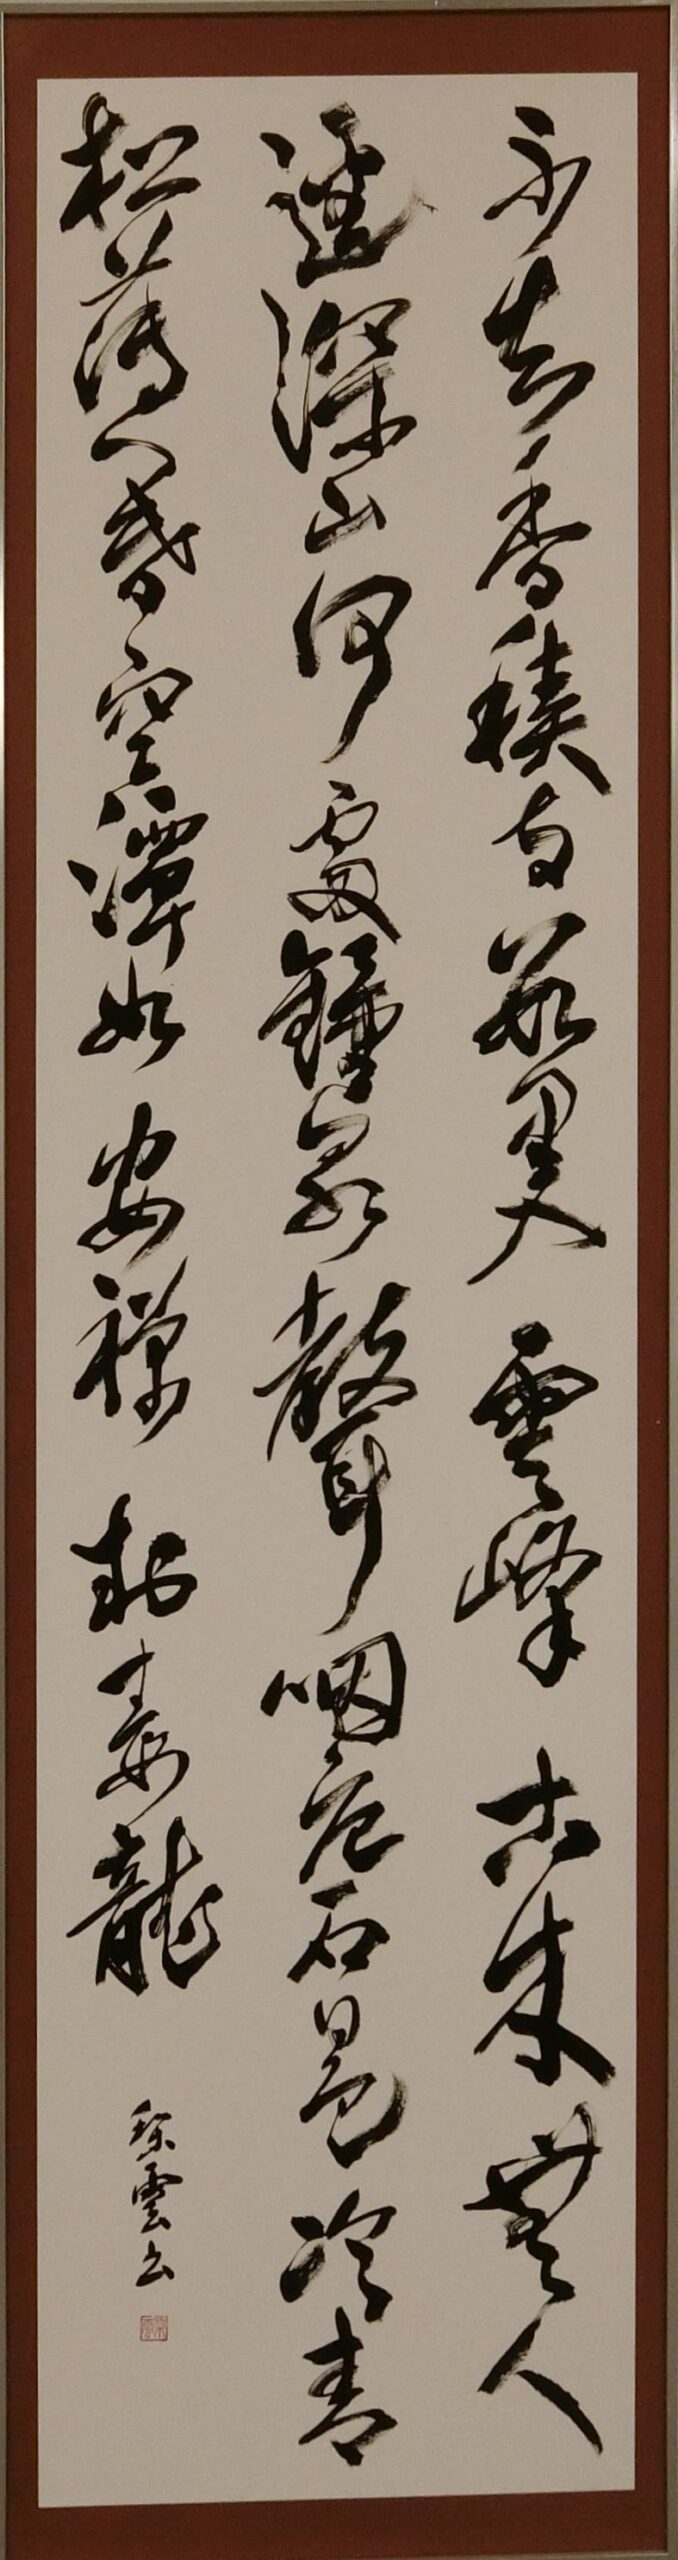 不知香積寺數里入雲峰古木無人
逕深山何處鐘泉聲咽危石日色冷青
松薄暮空潭曲安禪制毒龍
雲書